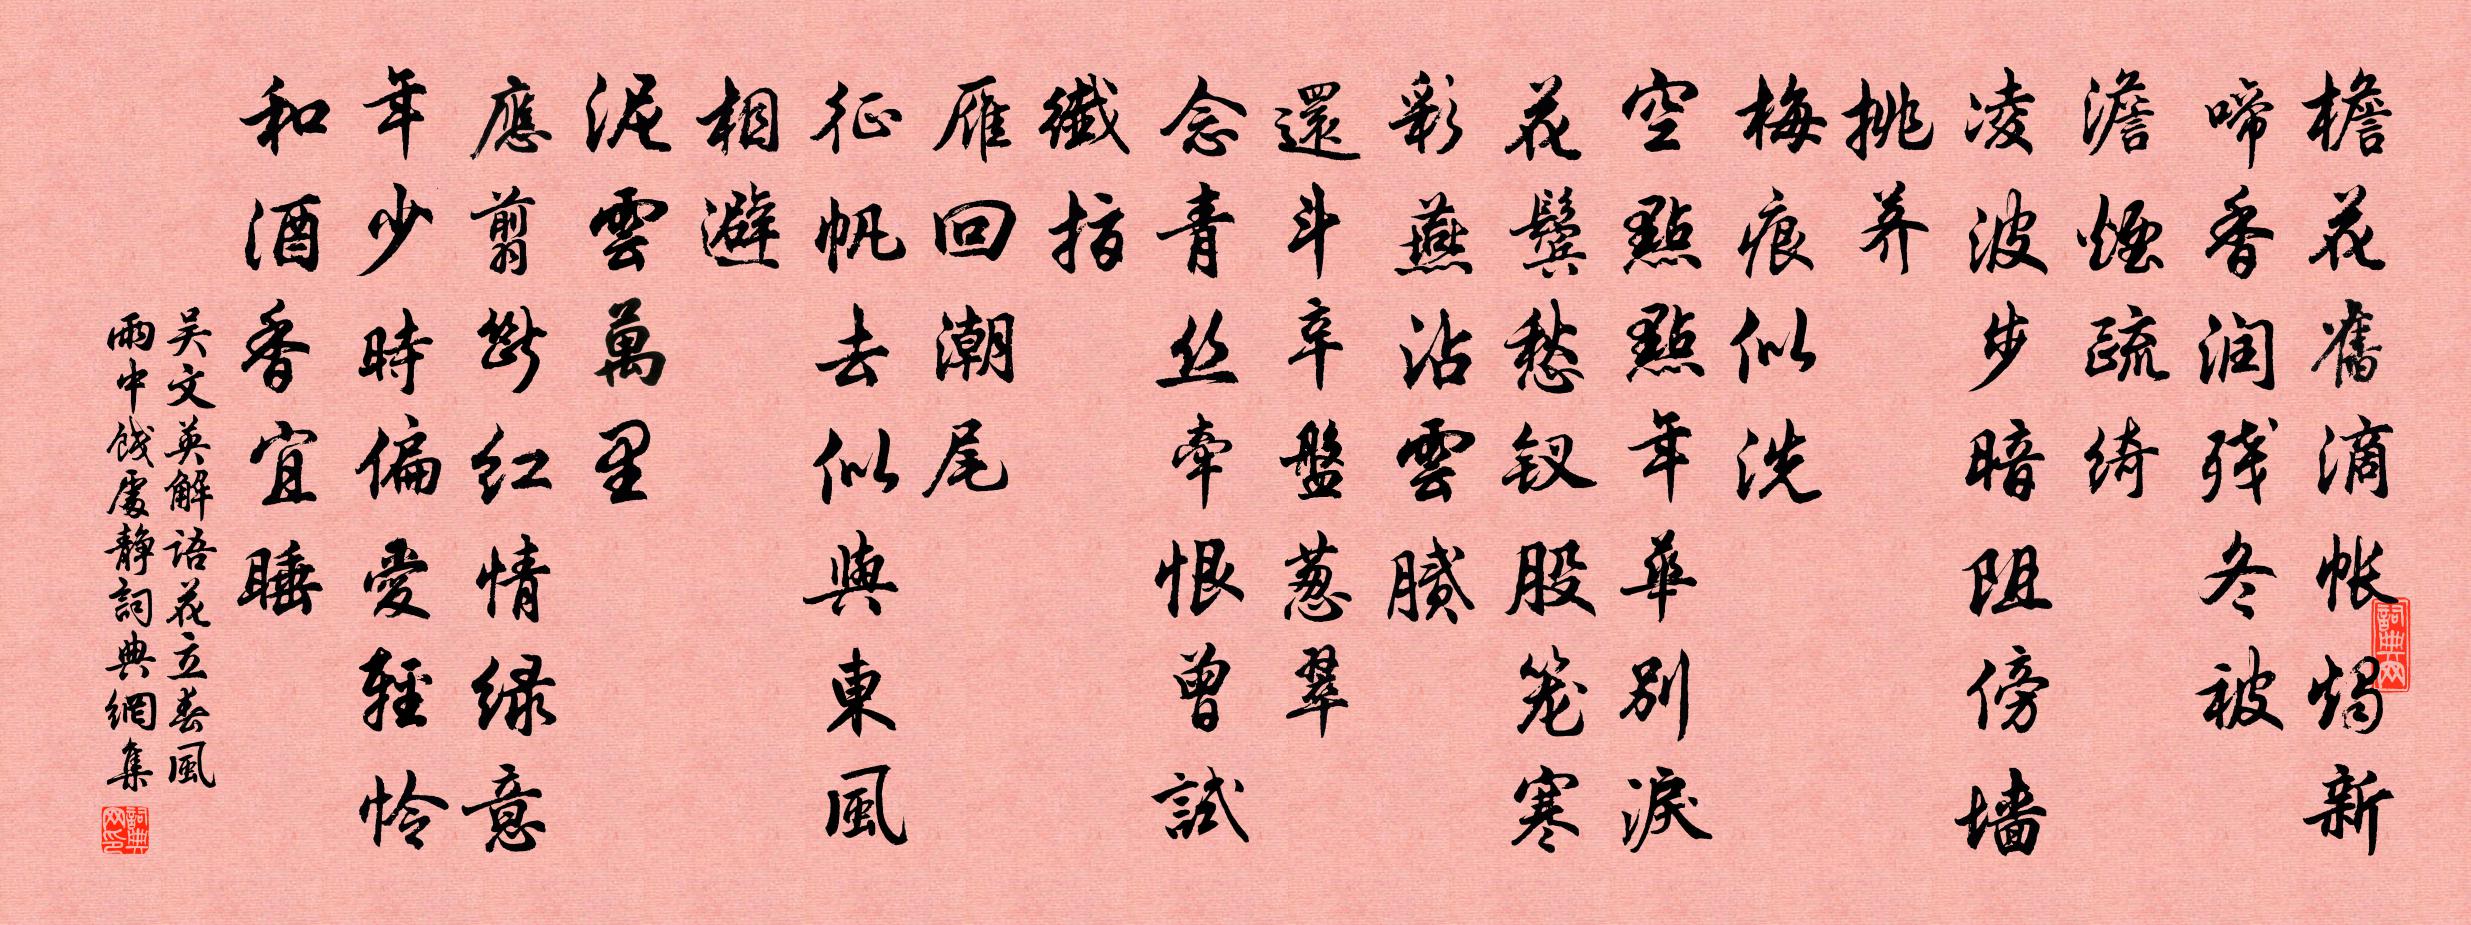 檐花舊滴帐燭新
啼香润残冬被
澹煙疏绮
凌波步暗阻傍墙
挑荠
梅痕似洗
空點點年華别淚
花鬓愁钗股笼寒
彩燕沾雲膩
還斗辛盤葱翠
念青丝牵恨曾試
纖指
雁回潮尾
征帆去似與東風
相避
泥雲萬里
應剪斷红情绿意
年少時偏愛輕怜
和酒香宜睡
吴文英解语花立春風
雨中饯處静詞典網集
詞典网
詞典网印